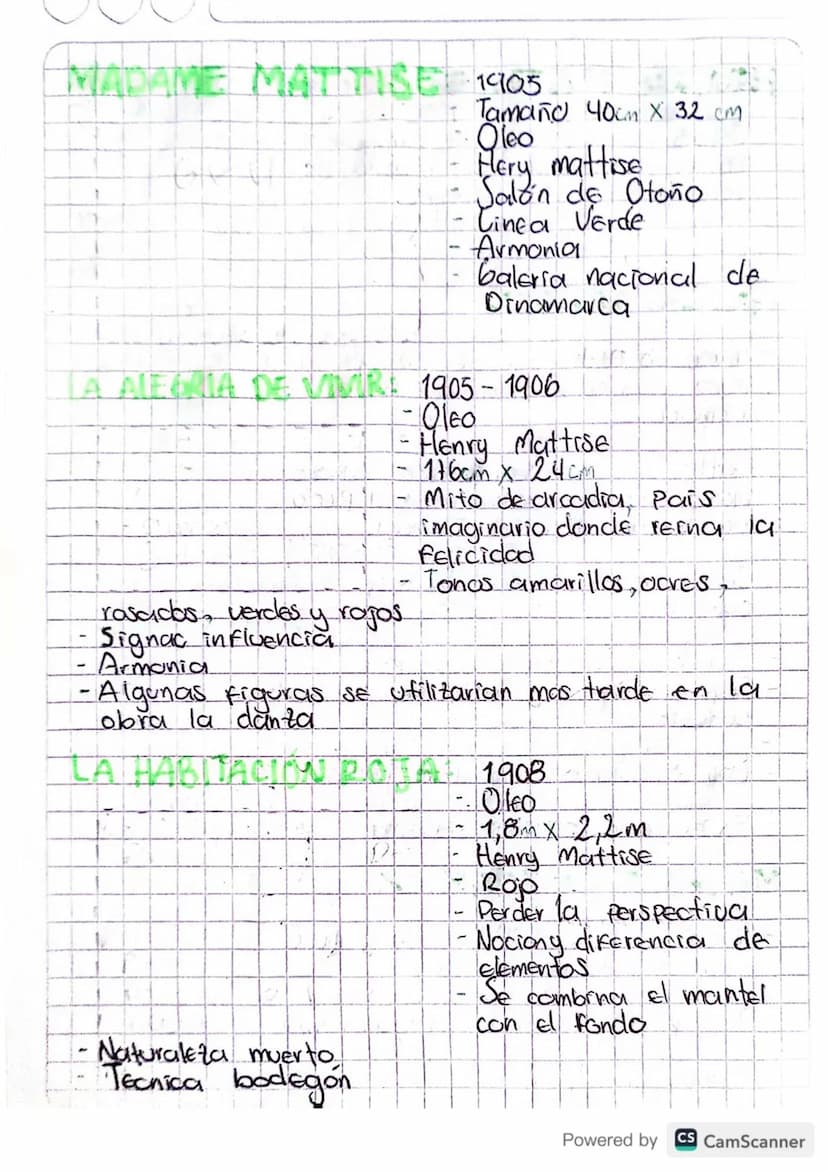 MADAME MATTISE: 1905
- Tamaño 40cm X 32 cm
- Oleo
- Hery mattise
- Salón de Otoño
- Linea Verde
- Armonia
- Galería nacional de
Dinamarca
LA ALEGRIA DE VIVIR: 1905 - 1906
- Oleo
- Henry Mattise
- 176cm x 24cm
- Mito de arcadia, pais
imaginario donde reina la
felicidad
- Tonos amarillos, ocres,
rosados, verdes y rojos
- Signac influencia
- Armonia
- Algunas figuras se utilizarian mas tarde en la
obra la danza
LA HABITACIÓN ROJA: 1908
- Oleo
- 1,8m x 2,2m
- Henry Mattise
- Rojo
- Perder la perspectiva
- Nocion y diferencia de
elementos
- Se combina el mantel
con el fondo
- Naturaleza muerto
- Tecnica bodegón
Powered by CS CamScanner